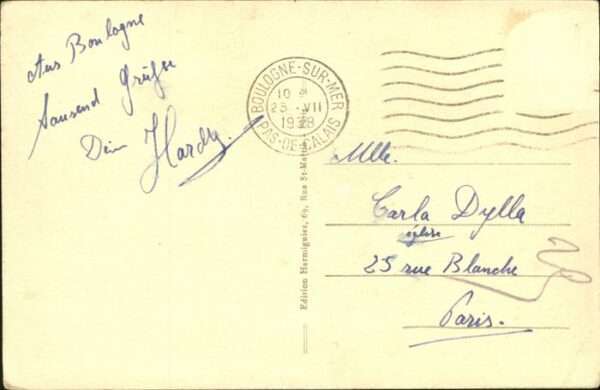 Aus Boulogne
tausend Grüße
Dein Hardy.
BOULOGNE-SUR-MER
10
25 -VII
1938
PAS-DE-CALAIS
Edition Harmignies, 69, Rue St-Martin,
Mlle.
Carla Dylla
église
25 rue Blanche
Paris.